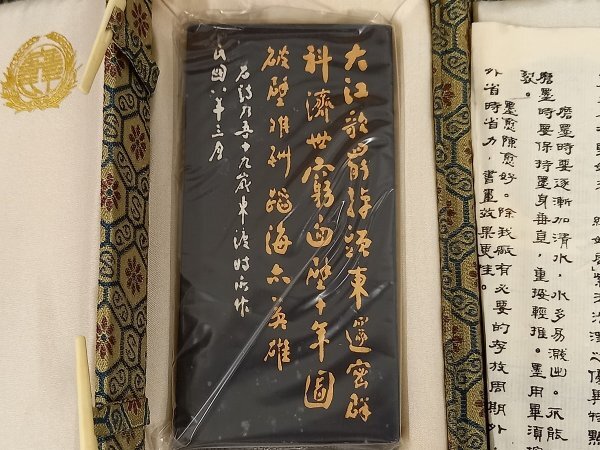 優異特點
磨墨時要逐漸加清水，水多易濺出。不能
磨墨時要保持墨身垂直，重按輕推。墨用畢須
裂。
墨愈陳愈好。除我廠有必要的存放周期外，
外省時省力，書畫效果更佳。
大江歌罷掉頭東邃密群
科濟世窮面壁十年圖
破壁难酬蹈海亦英雄
右詩乃吾十九歲東渡時所作
民國八年三月